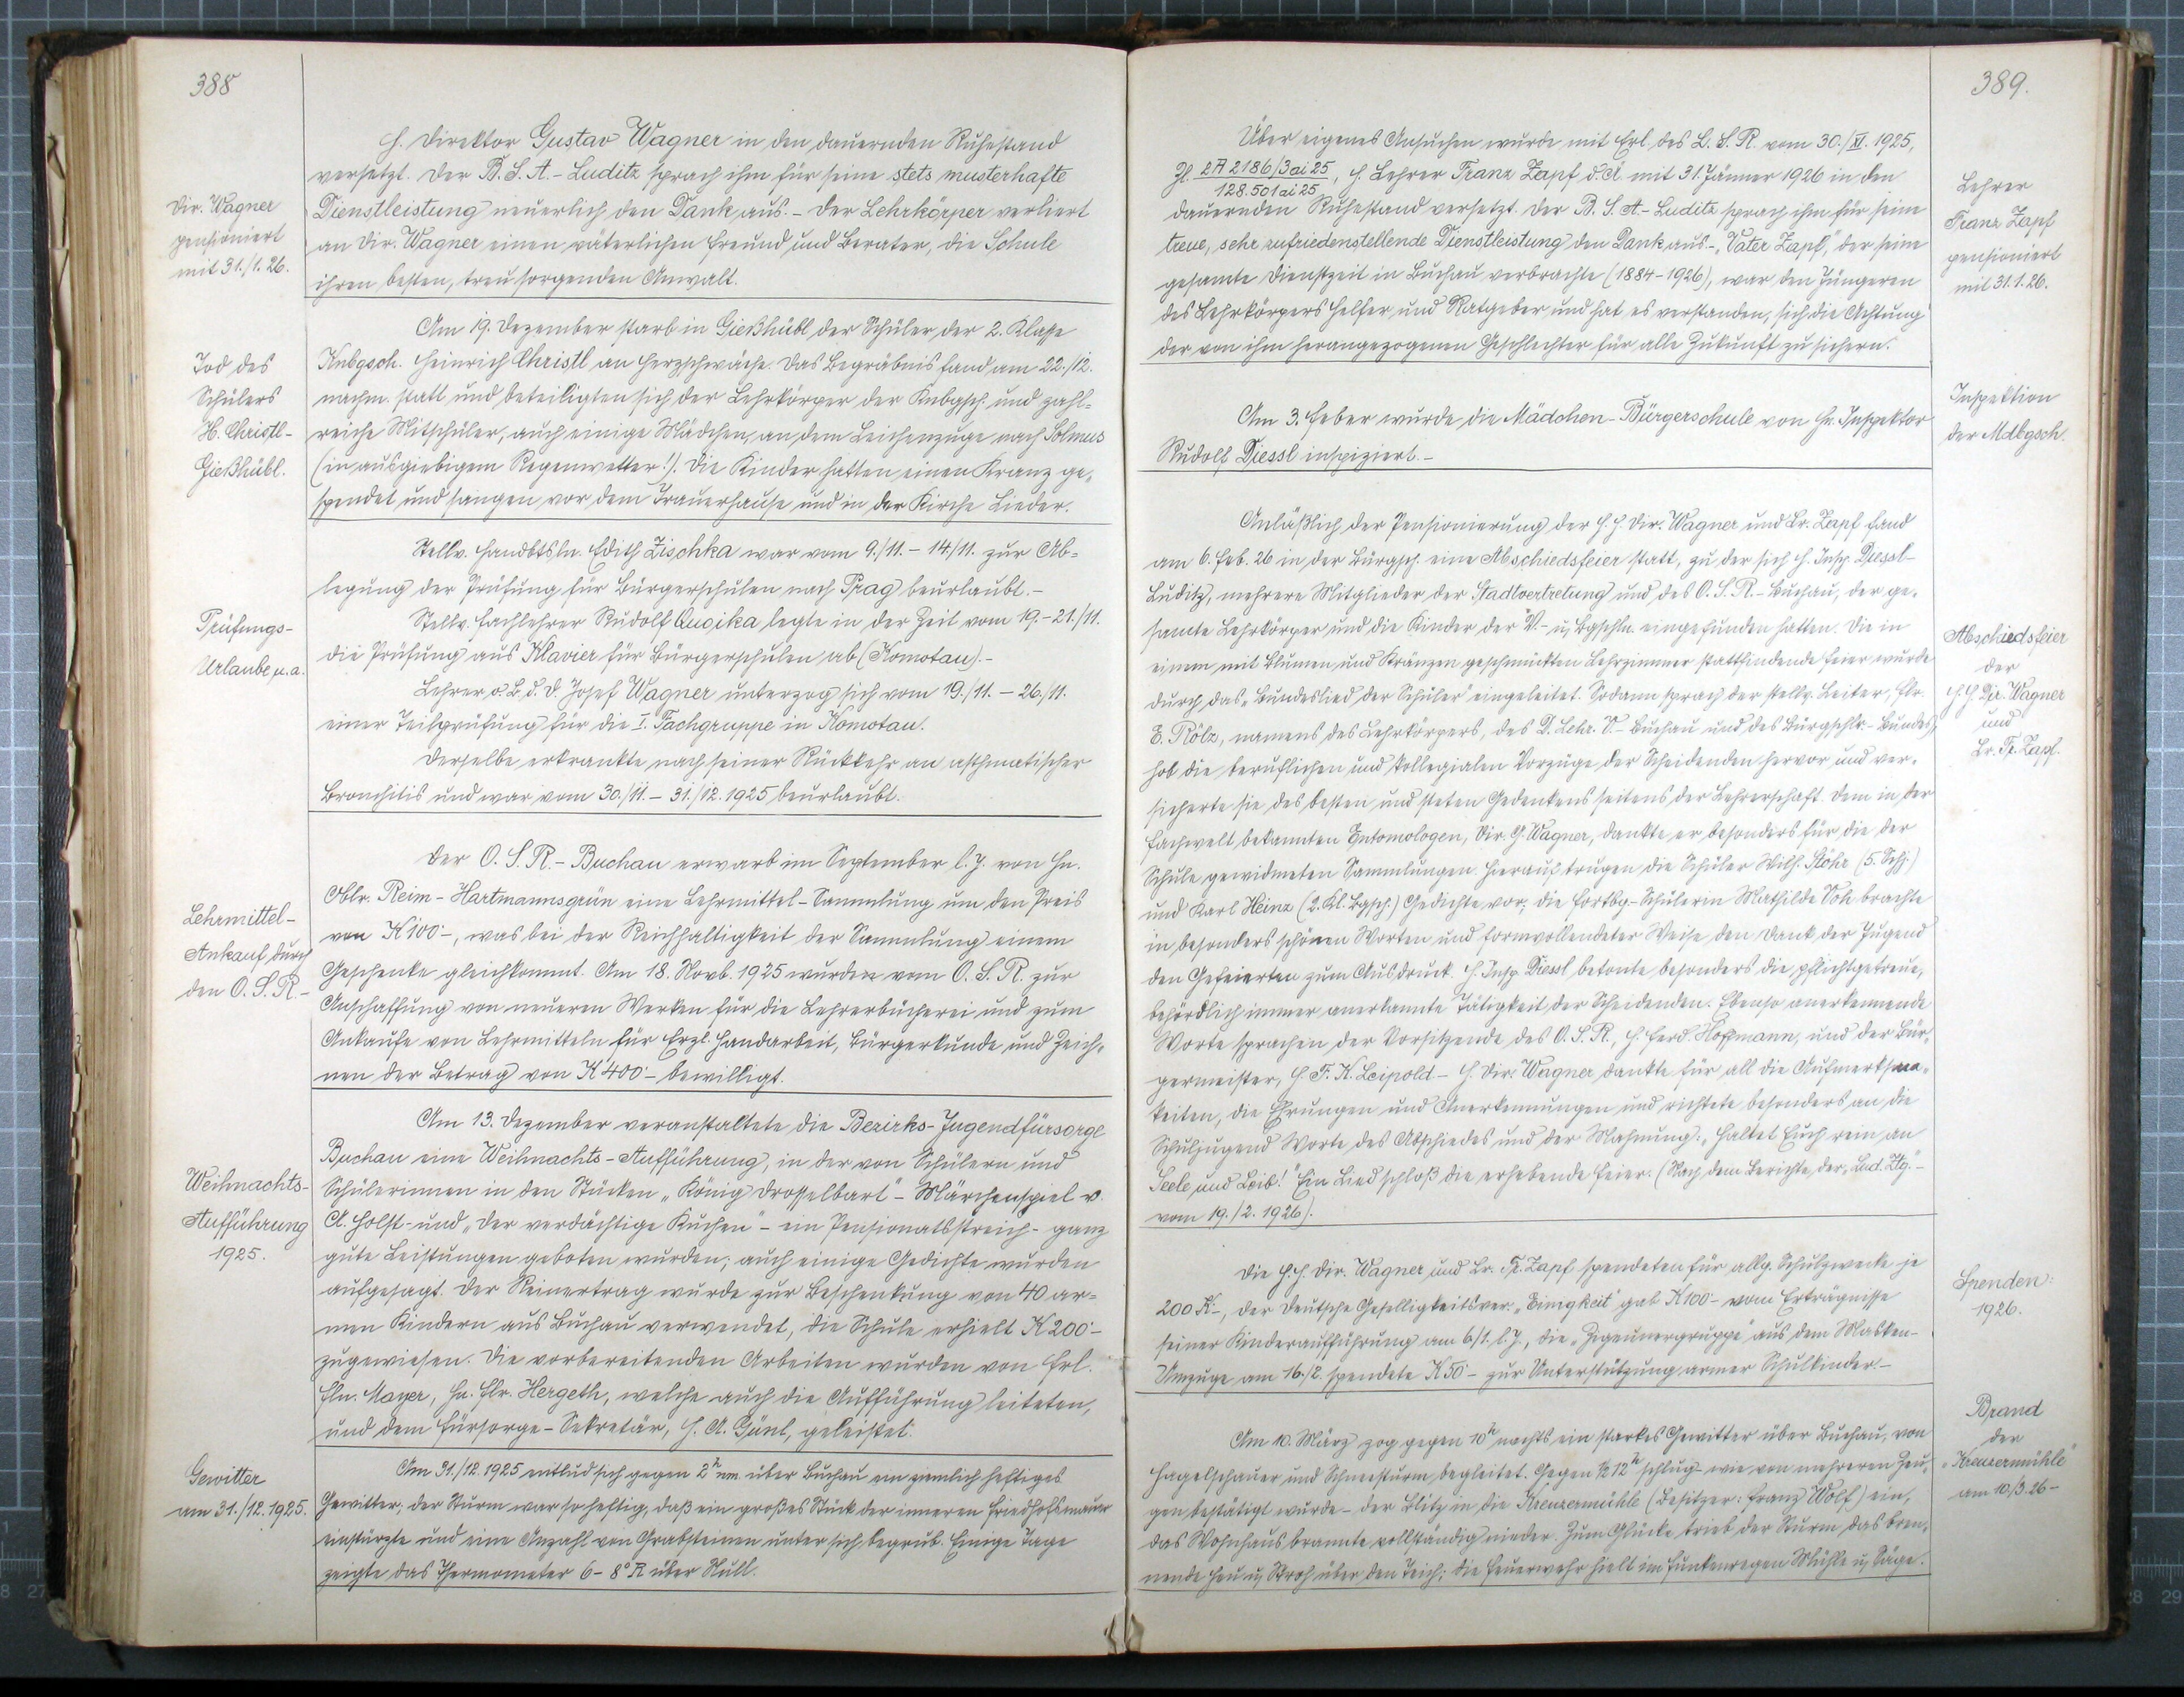 388
H. Direktor Gustav Wagner in den dauernden Ruhestand
versetzt. Der B. S. A. - Luditz sprach ihm für seine stets musterhafte
Dienstleistung neuerlich den Dank aus. - Der Lehrkörper verliert
an Dir. Wagner einen väterlichen Freund und Berater, die Schule
ihren besten, treu sorgenden Anwalt.
Dir. Wagner
pensioniert
mit 31./1. 26.
Am 19. Dezember starb in Gießhübl der Schüler der 2. Klasse
Knbgsch. Heinrich Christl an Herzschwäche. Das Begräbnis fand am 22./12.
nachm. statt und beteiligten sich der Lehrkörper der Knbgsch. und zahl=
reiche Mitschüler, auch einige Mädchen, an dem Leichenzuge nach Solmus
(in ausgiebigem Regenwetter!). Die Kinder hatten einen Kranz ge=
spendet und sangen vor dem Trauerhause und in der Kirche Lieder.
Tod des
Schülers
H. Christl-
Gießhübl.
Stellv. Handbtsln. Edith Zischka war vom 9./11. - 14/11. zur Ab=
legung der Prüfung für Bürgerschulen nach Prag beurlaubt. -
Stellv. Fachlehrer Rudolf legte in der Zeit vom 19.-21./11.
die Prüfung aus Klavier für Bürgerschulen ab (Komotau). -
Lehrer Josef Wagner unterzog sich vom 19./11. - 26./11.
einer Teilprüfung für die I. Fachgruppe in Komotau.
Derselbe erkrankte nach seiner Rückkehr an asthmatischer
Bronchitis und war vom 30./11. - 31./12. 1925 beurlaubt.
Prüfungs-
Urlaube u. a.
Der O. S. R. - Buchau erwarb im September l. J. von Hn.
Oblr. Reim - Hartmannsgrün eine Lehrmittel-Sammlung um den Preis
von K 100·-, was bei der Reichhaltigkeit der Sammlung einem
Geschenke gleichkommt. Am 18. Novb. 1925 wurden vom O. S. R. zur
Anschaffung von neueren Werken für die Lehrerbücherei und zum
Ankaufe von Lehrmitteln für Erzl. Handarbeit, Bürgerkunde und Zeich=
nen der Betrag von K 400·- bewilligt.
Lehrmittel-
Ankauf durch
den O. S. R. -
Am 13. Dezember veranstaltete die Bezirks-Jugendfürsorge
Buchau eine Weihnachts-Aufführung, in der von Schülern und
Schülerinnen in den Stücken „König Drosselbart" - Märchenspiel v.
A. Holst - und „Der verdächtige Kuchen" - ein Pensionatsstreich - ganz
gute Leistungen geboten wurden; auch einige Gedichte wurden
aufgesagt. Der Reinertrag wurde zur Beschenkung von 40 ar=
men Kindern aus Buchau verwendet, die Schule erhielt K 200·-
zugewiesen. Die vorbereitenden Arbeiten wurden von Frl.
Fln. Mayer, Hn. Flr. Hergeth, welche auch die Aufführung leiteten,
und dem Fürsorge-Sekretär, H. A. Günl, geleistet.
Weihnachts-
Aufführung
1925.
Am 31./12. 1925 entlud sich gegen 2h nm. über Buchau ein ziemlich heftiges
Gewitter; der Sturm war so heftig, daß ein großes Stück der inneren Friedhofsmauer
einstürzte und eine Anzahl von Grabsteinen unter sich begrub. Einige Tage
zeigte das Thermometer 6 - 8° R über Null.
Gewitter
am 31./12. 1925.
389.
Über eigenes Ansuchen wurde mit Erl. des L. S. R. vom 30./XI. 1925,
Zl. 2A 2186/3 ai 25
128.501 ai 25, H. Lehrer Franz Zapf d. Ä. mit 31. Jänner 1926 in den
dauernden Ruhestand versetzt. Der B. S. A. - Luditz sprach ihm für seine
treue, sehr zufriedenstellende Dienstleistung den Dank aus. - „Vater Zapf", der seine
gesamte Dienstzeit in Buchau verbrachte (1884-1926), war den Jüngeren
des Lehrkörpers Helfer und Ratgeber und hat es verstanden, sich die Achtung
der von ihm herangezogenen Geschlechter für alle Zukunft zu sichern.
Lehrer
Franz Zapf
pensioniert
mit 31.1.26.
Am 3. Feber wurde die Mädchen-Bürgerschule von Hr. Inspektor
Rudolf Diessl inspiziert. -
Inspektion
der Mdbgsch.
Anläßlich der Pensionierung der H. H. Dir. Wagner und Lr. Zapf fand
am 6. Feb. 26 in der Bürgsch. eine Abschiedsfeier statt, zu der sich H. Insp. Diessl-
Luditz, mehrere Mitglieder der Stadtvertretung und des O. S. R. - Buchau, der ge=
samte Lehrkörper und die Kinder der V.- u. Bgschln. eingefunden hatten. Die in
einem mit Blumen und Kränzen geschmückten Lehrzimmer stattfindende Feier wurde
durch das „Bundeslied der Schüler" eingeleitet. Sodann sprach der stellv. Leiter, Flr.
E. Pölz, namens des Lehrkörpers, des D. Lehr. V. - Buchau und des Bürgschlr.-Bundes,
hob die beruflichen und kollegialen Vorzüge der Scheidenden hervor und ver=
sicherte sie des besten und steten Gedenkens seitens der Lehrerschaft. Dem in der
Fachwelt bekannten Entomologen, Dir. G. Wagner, dankte er besonders für die der
Schule gewidmeten Sammlungen. Hierauf trugen die Schüler Wilh. Stöhr (5. Schj.)
und Karl Heinz (2. Kl. Bgsch.) Gedichte vor; die Fortbg.-Schülerin Mathilde brachte
in besonders schönen Worten und formvollendeter Weise den Dank der Jugend
den Gefeierten zum Ausdruck. H. Insp. Diessl betonte besonders die pflichtgetreue,
behördlich immer anerkannte Tätigkeit der Scheidenden. Ebenso anerkennende
Worte sprachen der Vorsitzende des O. S. R., H. Ferd. Hoffmann, und der Bür=
germeister, H. F. K. Leipold - H. Dir. Wagner dankte für all die Aufmerksam=
keiten, die Ehrungen und Anerkennungen und richtete besonders an die
Schuljugend Worte des Abschiedes und der Mahnung: „Haltet Euch rein an
Seele und Leib!" Ein Lied schloß die erhebende Feier. (Nach dem Berichte der „Lud. Ztg." -
vom 19./2. 1926).
Abschiedsfeier
der
H. H. Dir. Wagner
und
Lr. Fr. Zapf.
Die H. H. Dir. Wagner und Lr. Fr. Zapf spendeten für allg. Schulzwecke je
200 K·-, der Deutsche Geselligkeitsver. „Einigkeit" gab K 100·- vom Erträgnisse
seiner Kinderaufführung am 6/1. l. J., die „Zigeunergruppe" aus dem Masken-
Umzuge am 16./2. spendete K 50·- zur Unterstützung armer Schulkinder. -
Spenden:
1926.
Am 10. März zog gegen 10h nachts ein starkes Gewitter über Buchau, von
Hagelschauer und Schneesturm begleitet. Gegen ½ 12h schlug - wie von mehreren Zeu=
gen bestätigt wurde - der Blitz in die Kreuzermühle (Besitzer: Franz Wolf) ein,
das Wohnhaus brannte vollständig nieder. Zum Glücke trieb der Sturm das bren=
nende Heu u. Stroh über den Teich; die Feuerwehr hielt im Funkenregen Mühle u. Säge.
Brand
der
„Kreuzermühle"
am 10/3. 26 -